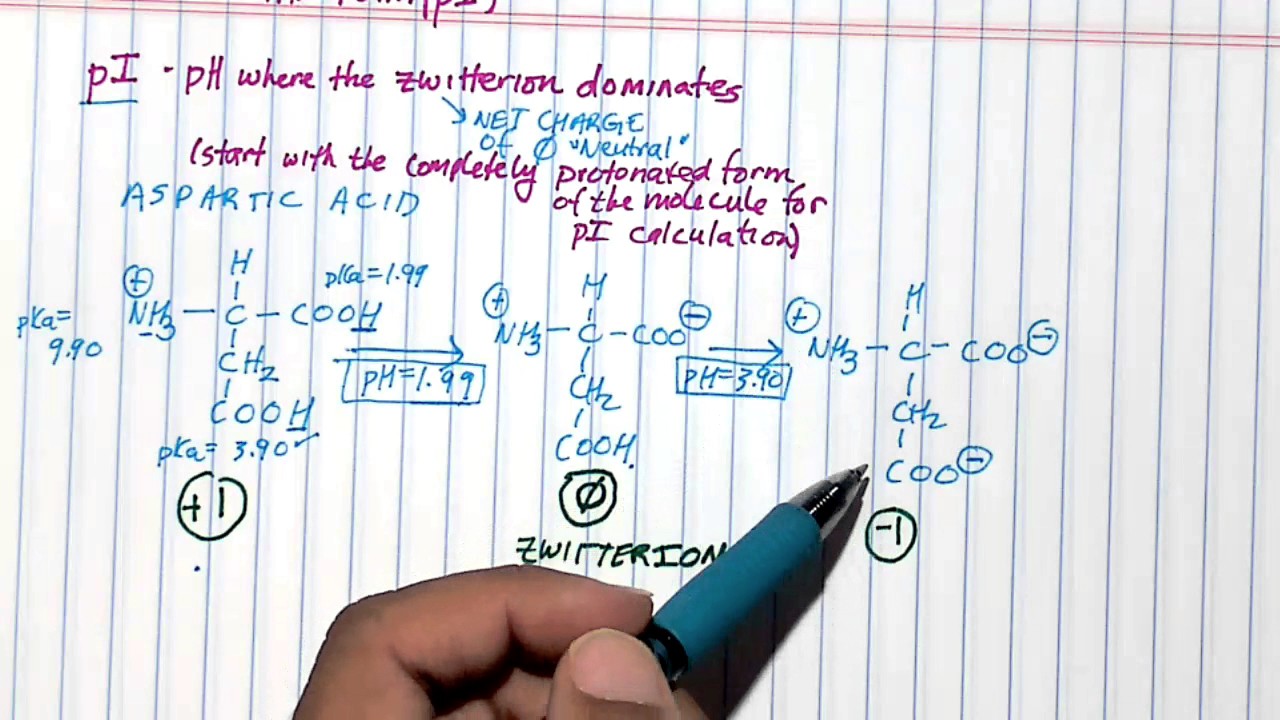 pI - pH where the zwitterion dominates
↘ NET CHARGE
of ∅ "Neutral"
(start with the completely protonated form
of the molecule for
pI calculation)
ASPARTIC ACID
⊕ H pKa=1.99
pKa= 9.90 NH3 — C — COOH
CH2
COOH
pKa= 3.90 ✓
+1
→ pH=1.99
⊕ H
NH3 — C — COO ⊖
CH2
COOH
∅
ZWITTERION
→ pH=3.90
⊕ H
NH3 — C — COO ⊖
CH2
COO ⊖
-1